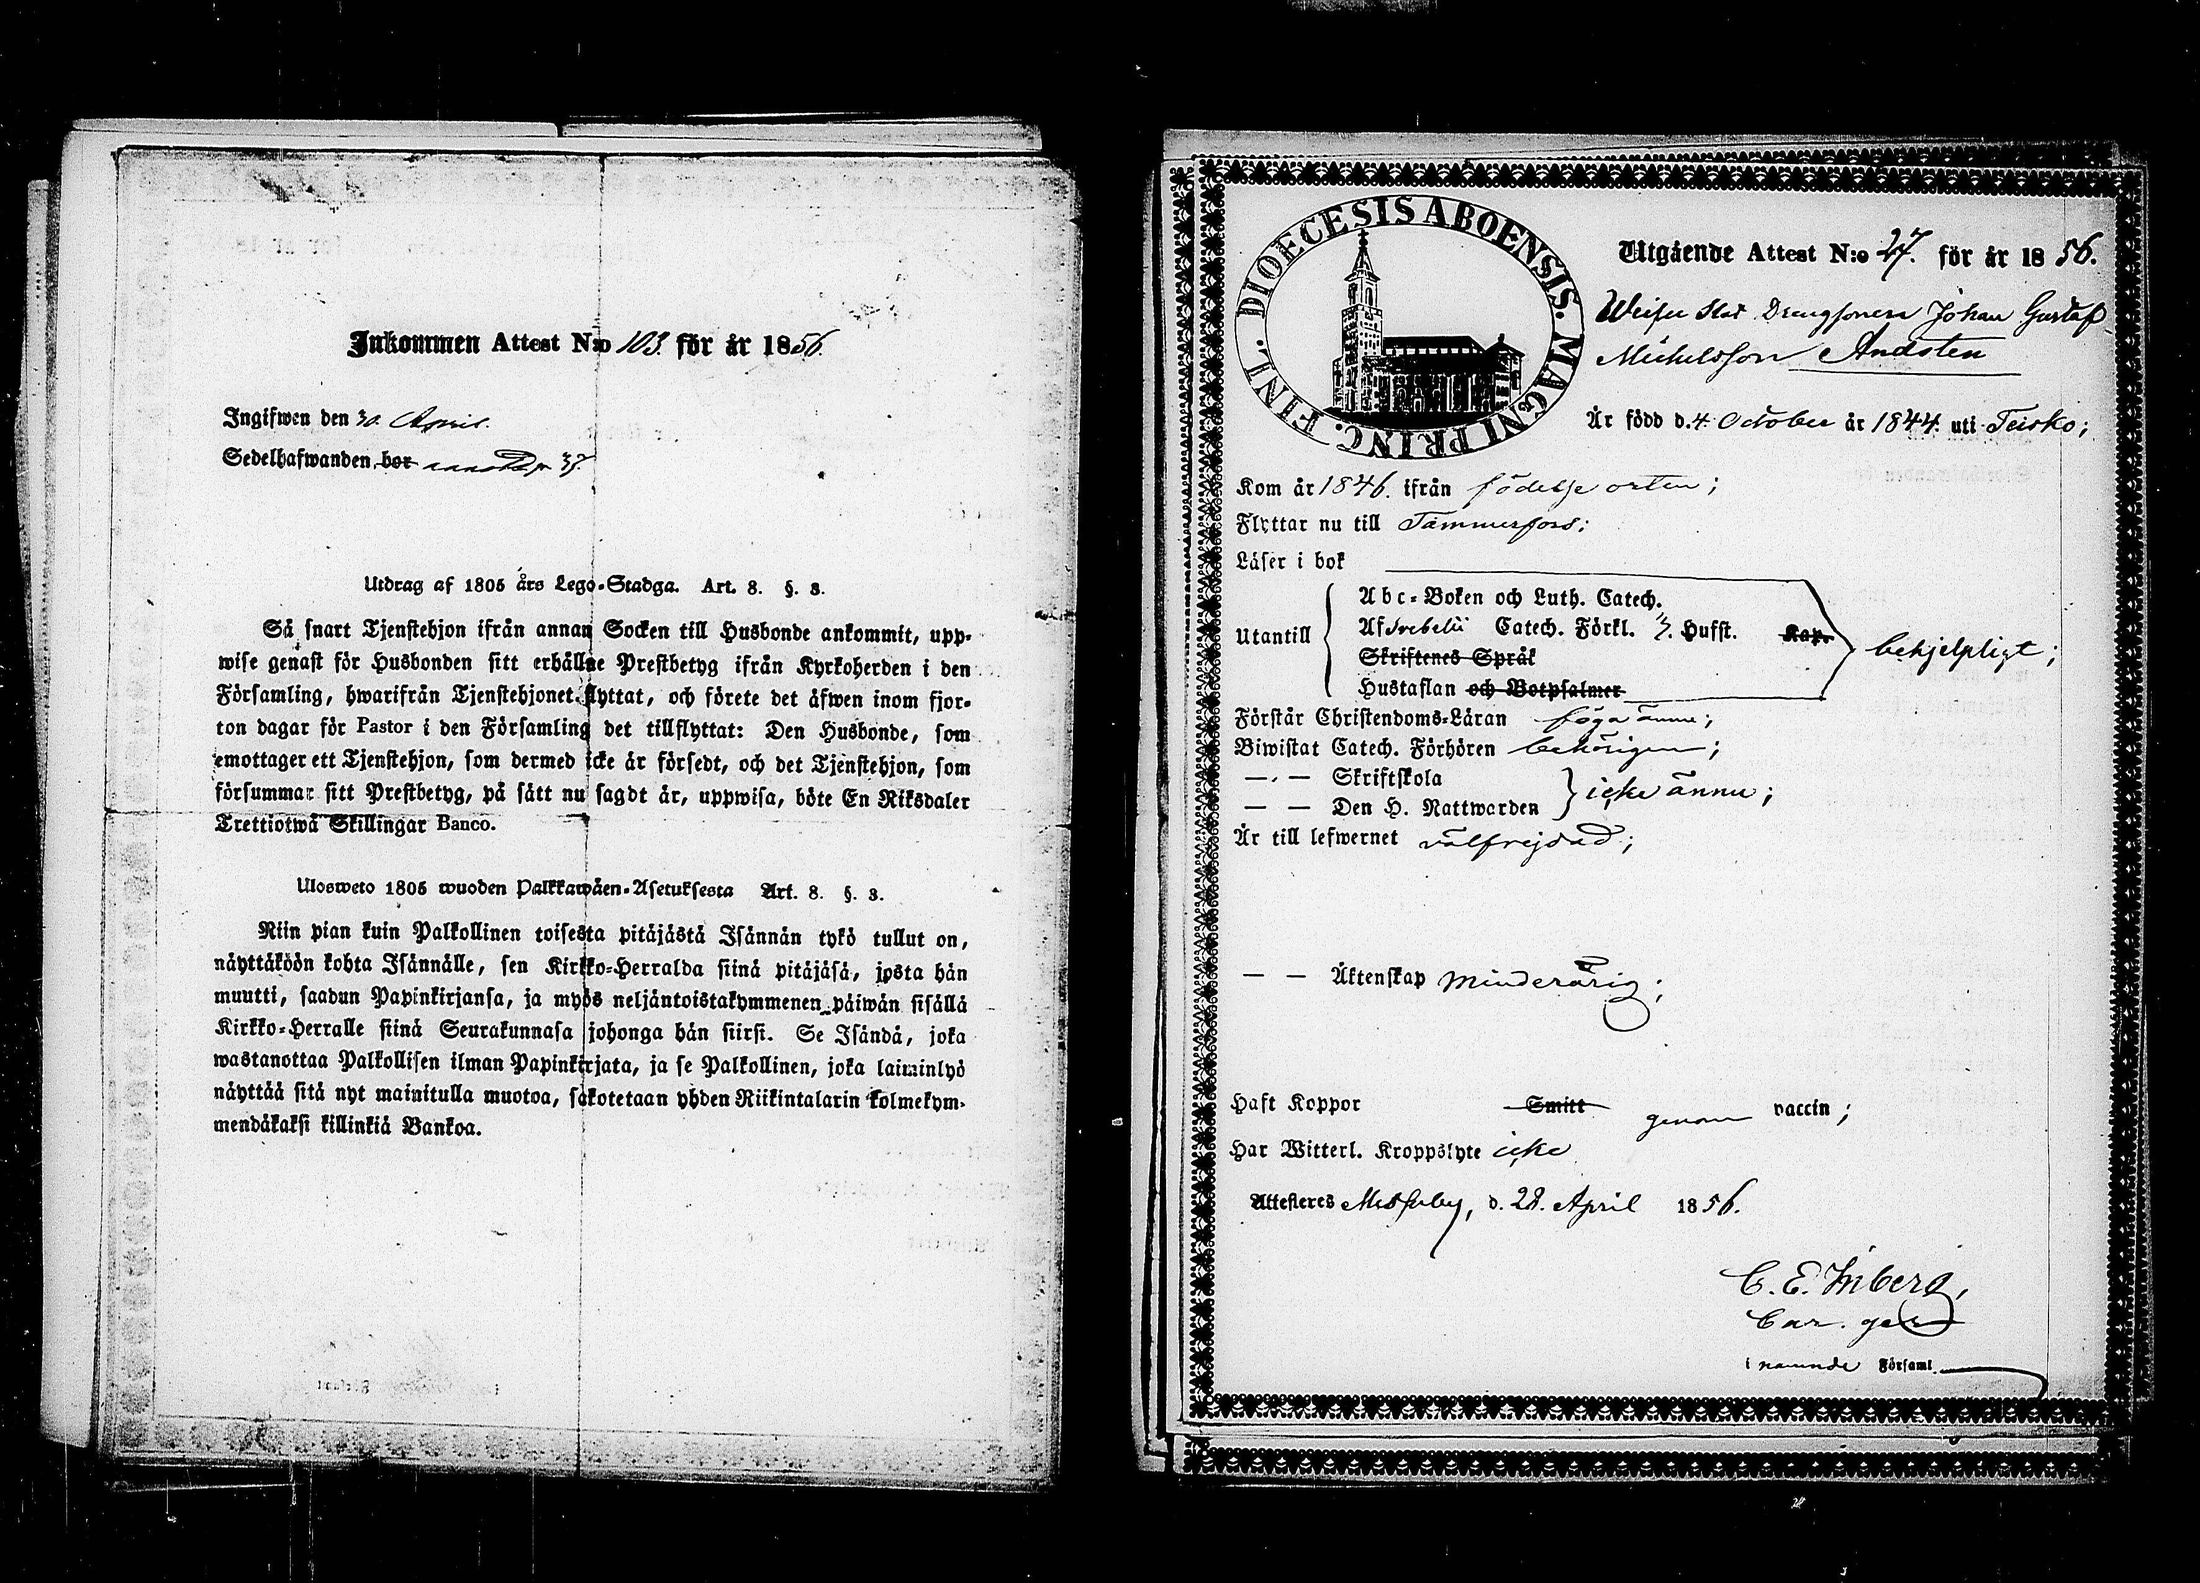 Inkommen Attest N:o 103. för år 1856.
Ingifwen den 30. April.
Sedelhafwanden bor
Utdrag af 1805 års Lego-Stadga. Art. 8. §. 3.
Så snart Tjenstehjon ifrån annan Socken till Husbonde ankommit, upp-
wise genast för Husbonden sitt erhållne Prestbetyg ifrån Kyrkoherden i den
Församling, hwarifrån Tjenstehjonet flyttat, och förete det äfwen inom fjor-
ton dagar för Pastor i den Församling det tillflyttat: Den Husbonde, som
emottager ett Tjenstehjon, som dermed icke är försedt, och det Tjenstehjon, som
försummar sitt Prestbetyg, på sätt nu sagdt är, uppwisa, böte En Riksdaler
Trettiotwå Skillingar Banco.
Ulosweto 1805 wuoden Palkkawäen-Asetuksesta Art. 8. §. 3.
Niin pian kuin Palkollinen toisesta pitäjästä Isännän tykö tullut on,
näyttäköön kohta Isännälle, sen Kirkko-Herralda siinä pitäjäsä, josta hän
muutti, saadun Papinkirjansa, ja myös neljäntoistakymmenen päiwän sisällä
Kirkko-Herralle siinä Seurakunnasa johonga hän siirsi. Se Isändä, joka
wastanottaa Palkollisen ilman Papinkirjata, ja se Palkollinen, joka laiminlyö
näyttää sitä nyt mainitulla muotoa, sakotetaan yhden Riikintalarin kolmekym-
mendäkaksi killinkiä Bankoa.
DIOECESIS ABOENSIS. MAGNI PRINC. FINL.
Utgående Attest N:o 27. för år 1856.
Drengsonen Johan Gustaf
Michelsson Andsten
Är född d. 4. October år 1844. uti Teisko;
Kom år 1846. ifrån födelse orten;
Flyttar nu till Tammerfors;
Läser i bok
Utantill
Abc-Boken och Luth. Catech.
Af Svebelii Catech. Förkl. Hufst. Kap.
Skriftenes Språk
Hustaflan och Botpsalmer
behjelpligt;
Förstår Christendoms-Läran föga ännu;
Biwistat Catech. Förhören behörigen;
— — Skriftskola
— — Den H. Nattwarden
icke ännu;
Är till lefwernet välfrejdad;
— — Äktenskap minderårig;
Haft Koppor Smitt genom vaccin;
Har Witterl. Kroppslyte icke
Attesteres Messuby, d. 28. April 1856.
C. E.
i Församl.